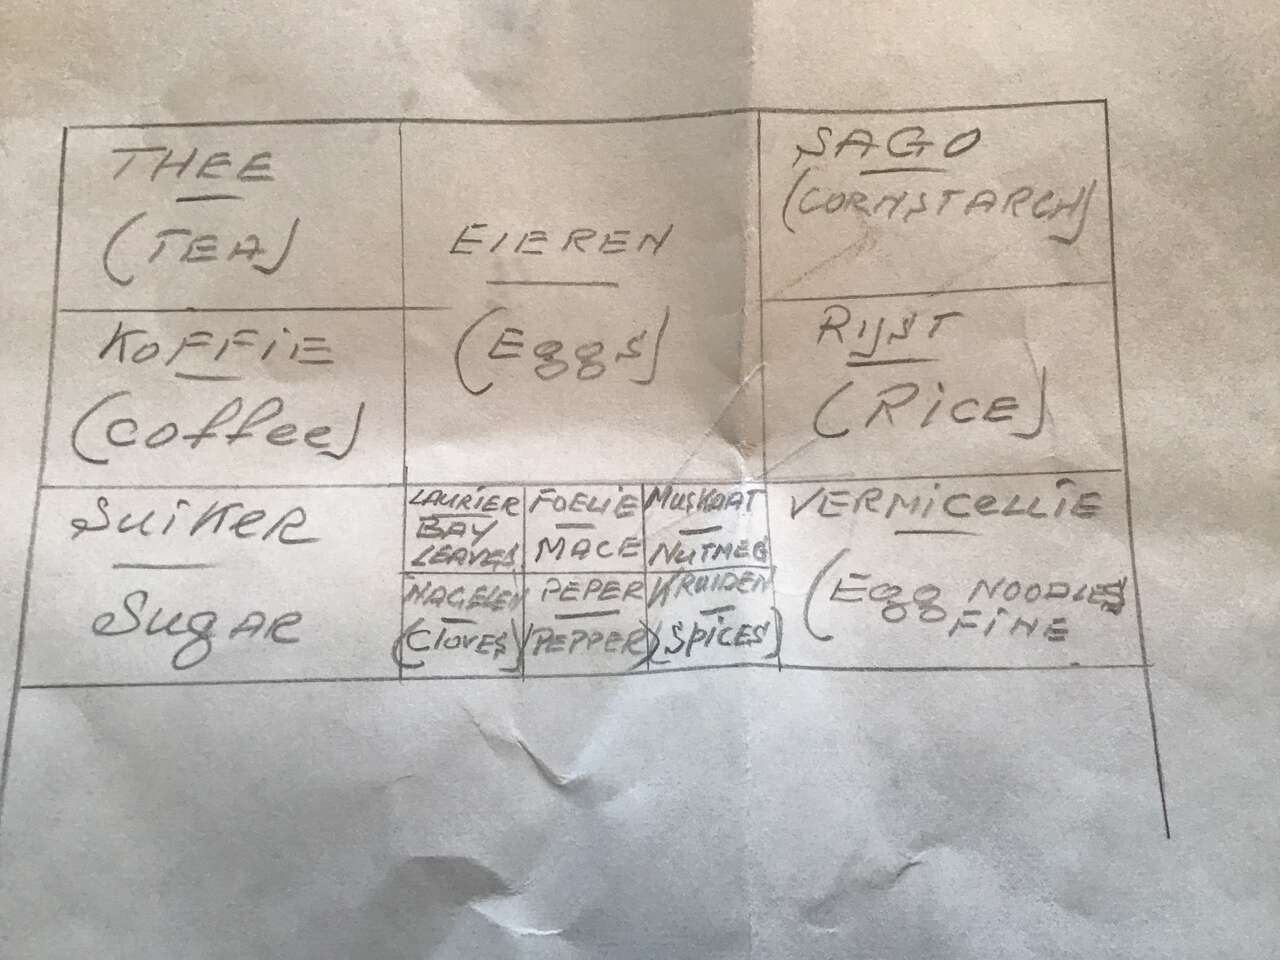 THEE
(TEA)
EIEREN
(Eggs)
SAGO
(CORNSTARCH)
KOFFIE
(Coffee)
RIJST
(RICE)
SUIKER
SUGAR
LAURIER
BAY
LEAVES
FOELIE
MACE
MUSKAAT
NUTMEG
NAGELEN
(CLOVES)
PEPER
(PEPPER)
KRUIDEN
(SPICES)
VERMICELLIE
(Egg NOODLES
FINE